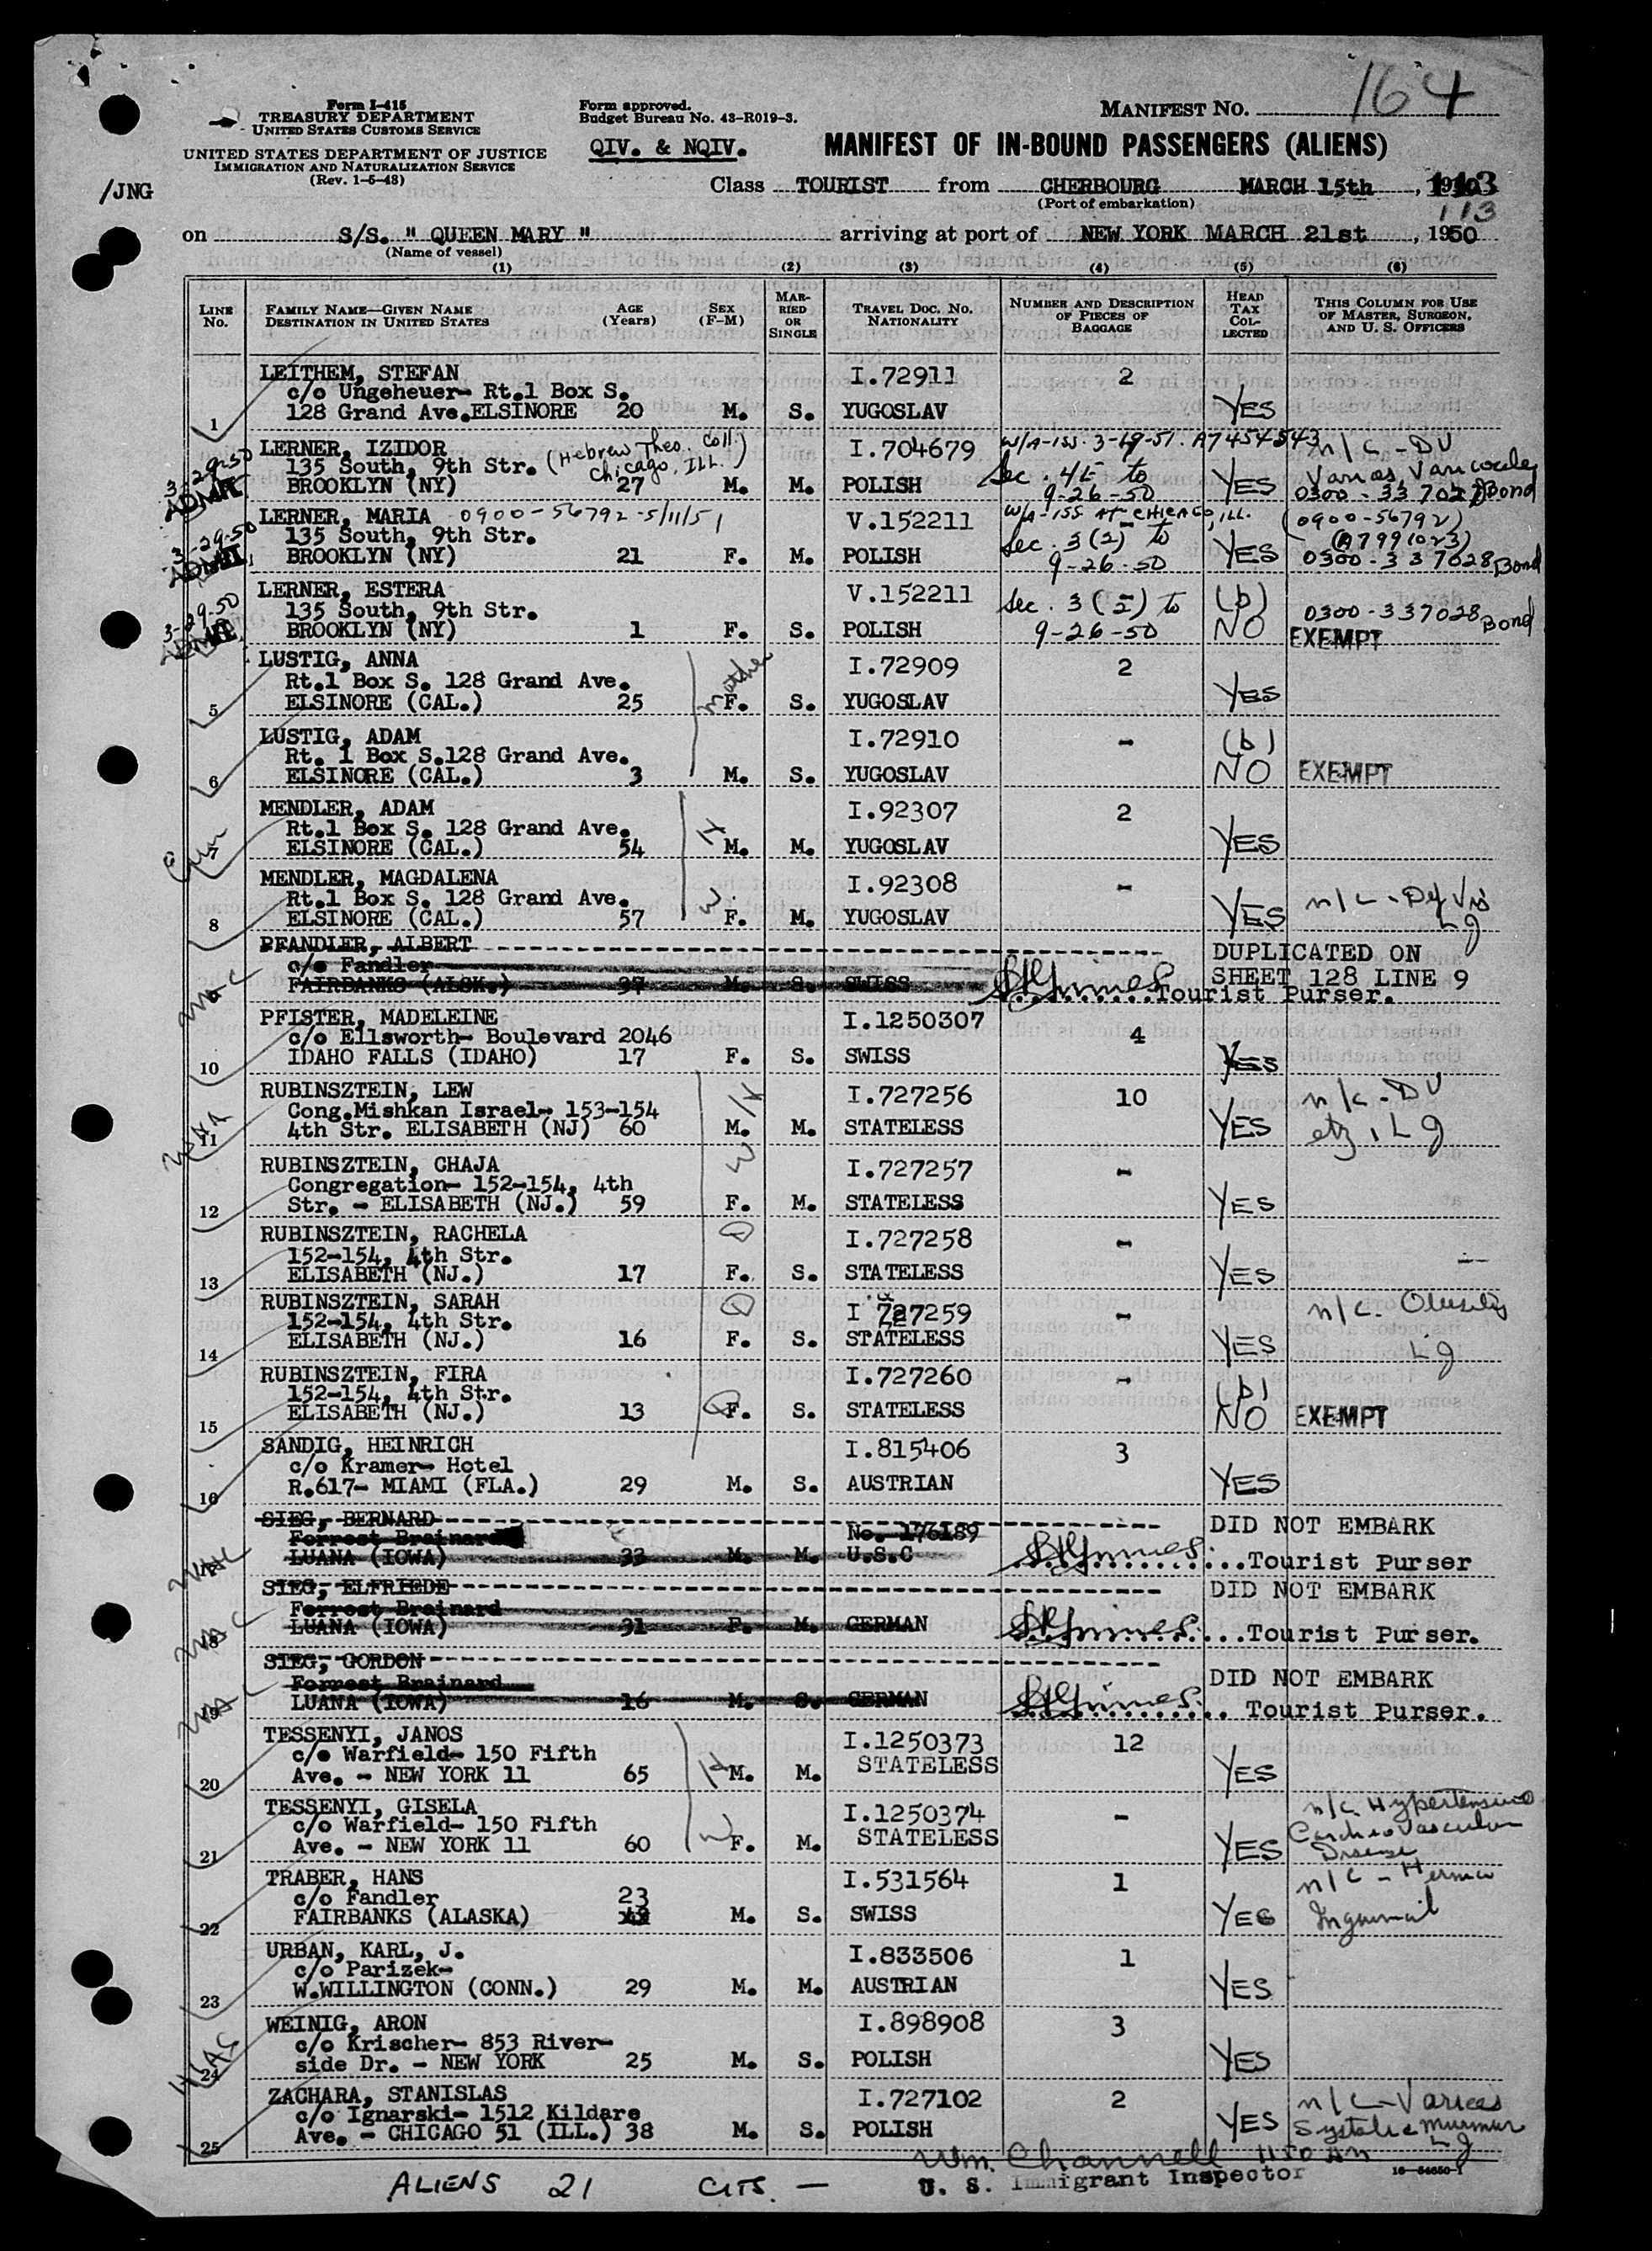 164
Form I-415
TREASURY DEPARTMENT
UNITED STATES CUSTOMS SERVICE
UNITED STATES DEPARTMENT OF JUSTICE
IMMIGRATION AND NATURALIZATION SERVICE
(Rev. 1-5-48)
/JNG
Form approved.
Budget Bureau No. 43-R019-3.
QIV. & NQIV.
MANIFEST NO.
MANIFEST OF IN-BOUND PASSENGERS (ALIENS)
Class TOURIST from CHERBOURG MARCH 15th, 1950
(Port of embarkation)
113
113
on S/S. " QUEEN MARY " arriving at port of NEW YORK MARCH 21st, 1950
(Name of vessel)
(1) (2) (3) (4) (5) (6)
LINE No. FAMILY NAME—GIVEN NAME DESTINATION IN UNITED STATES AGE (Years) SEX (F-M) MARRIED OR SINGLE TRAVEL DOC. NO. NATIONALITY NUMBER AND DESCRIPTION OF PIECES OF BAGGAGE HEAD TAX COLLECTED THIS COLUMN FOR USE OF MASTER, SURGEON, AND U. S. OFFICERS
LEITHEM, STEFAN I.72911 2
c/o Ungeheuer- Rt.1 Box S.
1 128 Grand Ave.ELSINORE 20 M. S. YUGOSLAV YES
LERNER, IZIDOR (Hebrew Theo. Coll. Chicago, ILL.) I.704679 W/A-iss. 3-19-51. A7454543 n/c - DV
3-29-50 135 South, 9th Str. Sec. 4E to
ADMIT. BROOKLYN (NY) 27 M. M. POLISH 9-26-50 YES 0300-337027 Bond
LERNER, MARIA 0900-56792-5/11/51 V.152211 W/A-ISS AT CHICAGO, ILL. (0900-56792)
3-29-50 135 South, 9th Str. Sec. 3(2) to (A7991023)
ADMIT. BROOKLYN (NY) 21 F. M. POLISH 9-26-50 YES 0300-337028 Bond
LERNER, ESTERA V.152211 Sec. 3(2) to (b)
3-29-50 135 South, 9th Str. 0300-337028 Bond
ADMIT. BROOKLYN (NY) 1 F. S. POLISH 9-26-50 NO EXEMPT
LUSTIG, ANNA mother I.72909 2
Rt.1 Box S. 128 Grand Ave.
5 ELSINORE (CAL.) 25 F. S. YUGOSLAV YES
LUSTIG, ADAM I.72910 - (b)
Rt. 1 Box S.128 Grand Ave.
6 ELSINORE (CAL.) 3 M. S. YUGOSLAV NO EXEMPT
MENDLER, ADAM I.92307 2
Rt.1 Box S. 128 Grand Ave. H
7 ELSINORE (CAL.) 54 M. M. YUGOSLAV YES
MENDLER, MAGDALENA I.92308 -
Rt.1 Box S. 128 Grand Ave. W. n/c - Def Vis
8 ELSINORE (CAL.) 57 F. M. YUGOSLAV YES Lg
PFANDLER, ALBERT DUPLICATED ON
c/o Fandler SHEET 128 LINE 9
9 FAIRBANKS (ALSK.) 37 M. S. SWISS Tourist Purser.
PFISTER, MADELEINE I.1250307 4
c/o Ellsworth- Boulevard 2046
10 IDAHO FALLS (IDAHO) 17 F. S. SWISS YES
RUBINSZTEIN, LEW I.727256 10 n/c - DV
Cong.Mishkan Israel- 153-154 H
11 4th Str. ELISABETH (NJ) 60 M. M. STATELESS YES etz, Lg
RUBINSZTEIN, CHAJA W I.727257 -
Congregation- 152-154, 4th
12 Str. - ELISABETH (NJ.) 59 F. M. STATELESS YES
RUBINSZTEIN, RACHELA D I.727258 -
152-154, 4th Str.
13 ELISABETH (NJ.) 17 F. S. STATELESS YES
RUBINSZTEIN, SARAH D I 727259 - n/c - Obesity
152-154, 4th Str.
14 ELISABETH (NJ.) 16 F. S. STATELESS YES Lg
RUBINSZTEIN, FIRA D I.727260 - (b)
152-154, 4th Str.
15 ELISABETH (NJ.) 13 F. S. STATELESS NO EXEMPT
SANDIG, HEINRICH I.815406 3
c/o Kramer- Hotel
16 R.617- MIAMI (FLA.) 29 M. S. AUSTRIAN YES
SIEG, BERNARD No. 176189 DID NOT EMBARK
Forrest Brainard
LUANA (IOWA) 33 M. M. U.S.C Tourist Purser
SIEG, ELFRIEDE DID NOT EMBARK
Forrest Brainard
18 LUANA (IOWA) 31 F. M. GERMAN Tourist Purser.
SIEG, GORDON DID NOT EMBARK
Forrest Brainard
19 LUANA (IOWA) 16 M. S. GERMAN Tourist Purser.
TESSENYI, JANOS I.1250373 12
c/o Warfield- 150 Fifth H STATELESS
20 Ave. - NEW YORK 11 65 M. M. YES
TESSENYI, GISELA I.1250374 - n/c Hypertensive
c/o Warfield- 150 Fifth W STATELESS Cardiovascular
21 Ave. - NEW YORK 11 60 F. M. YES Disease
TRABER, HANS I.531564 1 n/c - Hernia
c/o Fandler 23
22 FAIRBANKS (ALASKA) M. S. SWISS YES Inguinal
URBAN, KARL, J. I.833506 1
c/o Parizek-
23 W.WILLINGTON (CONN.) 29 M. M. AUSTRIAN YES
WEINIG, ARON I.898908 3
c/o Krischer- 853 River-
24 side Dr. - NEW YORK 25 M. S. POLISH YES
ZACHARA, STANISLAS I.727102 2 n/c - Varices
c/o Ignarski- 1512 Kildare Systolic murmur
25 Ave. - CHICAGO 51 (ILL.) 38 M. S. POLISH YES Lg
Wm. Channell 1150 AM
ALIENS 21 CITS. — U. S. Immigrant Inspector 16-54650-1